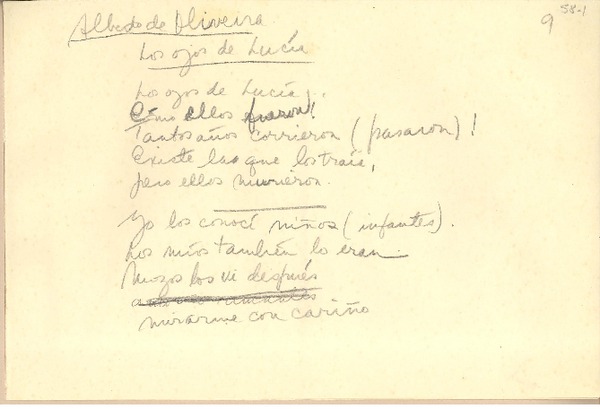 Alberto de Oliveira
9
58-1
Los ojos de Lucía
Los ojos de Lucía!
Cómo ellos fueron!
Tantos años corrieron (pasaron)!
Existe la que los traía,
pero ellos murieron.
Yo los conocí niños (infantes).
Los míos también lo eran
Mozos los vi después
mirarme con cariño